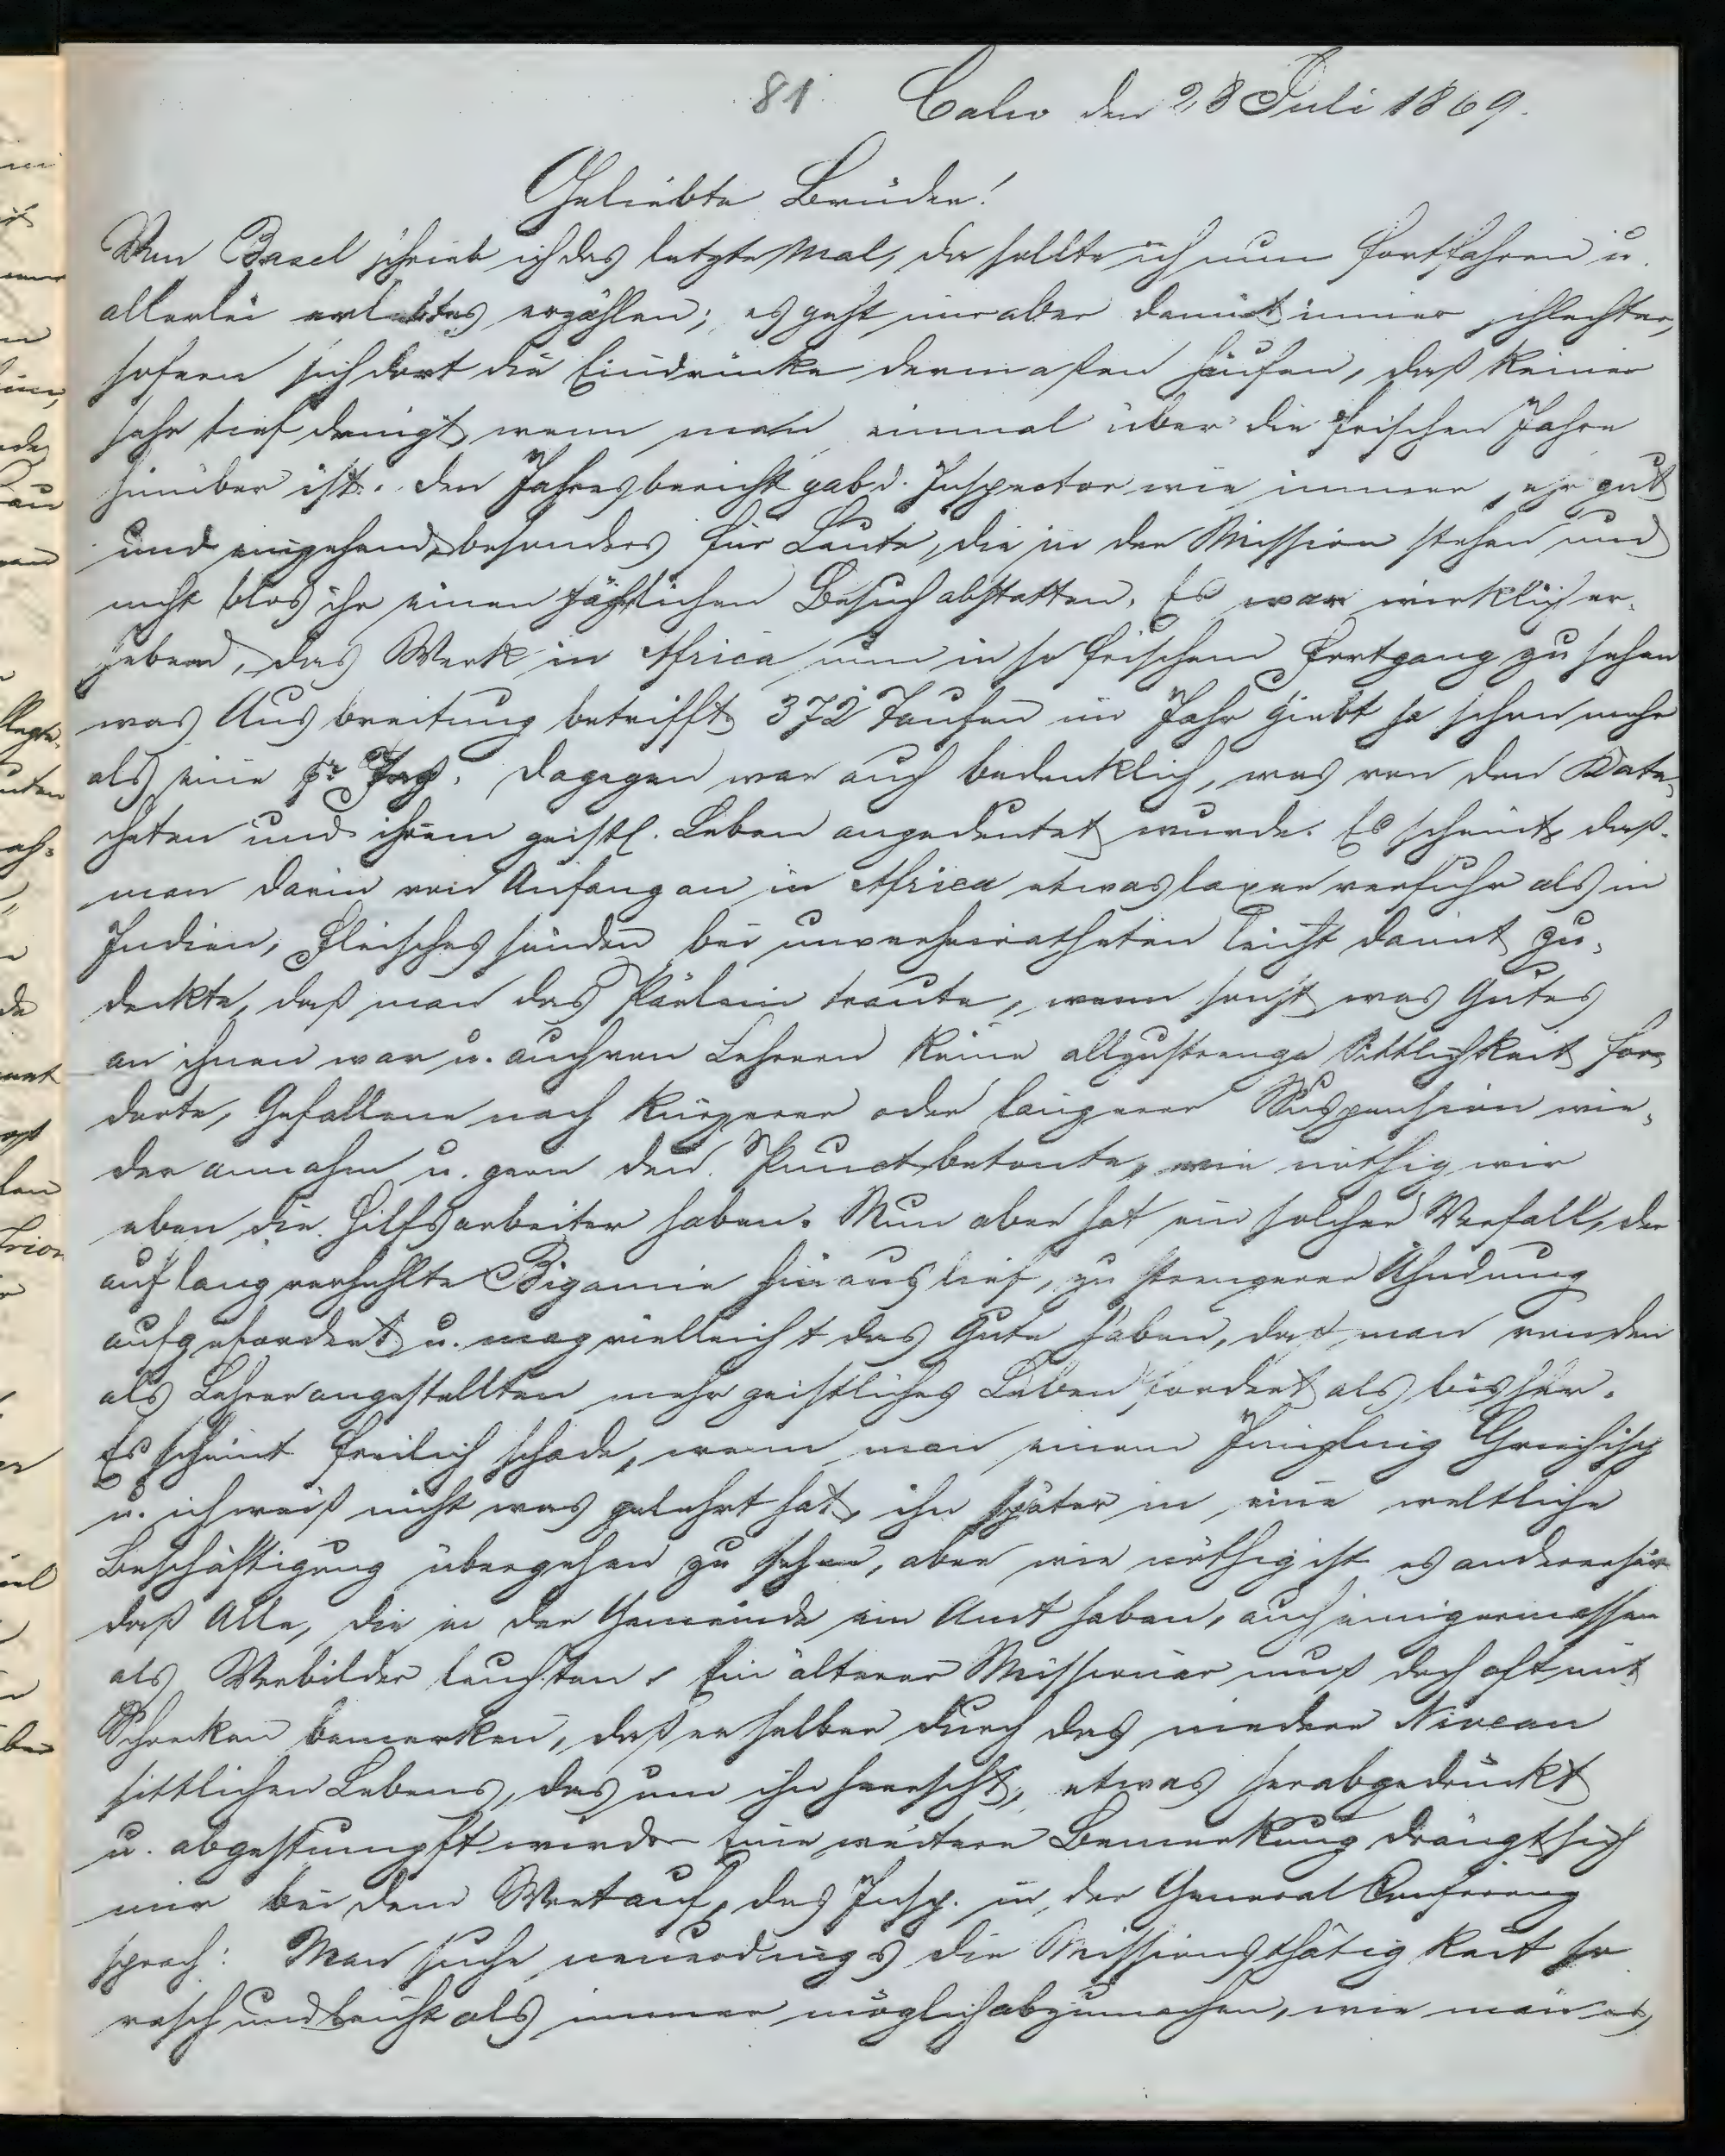 81 Calw den 28 Juli 1869.
Geliebte Brüder!
Von Basel schrieb ich das letzte Mal, da sollte ich nun fortfahren u.
allerlei erlebtes erzählen; es geht mir aber damit immer schlechter,
sofern sich dort die Eindrücke dermaßen häufen, daß keiner
sehr tief dringt, wenn man einmal über die frischen Jahre
hinüber ist. Den Jahresbericht gab d. Inspector wie immer sehr gut
und eingehend, besonders für Leute, die in der Mission stehen und
nicht blos ihr einen jährlichen Besuch abstatten. Es war wirklich er-
hebend, das Werk in Africa nun in so frischem Fortgang zu sehen
was Ausbreitung betrifft, 372 Taufen im Jahr giebt ja schon mehr
als eine pr Tag. Dagegen war auch bedenklich, was von den Kate-
cheten und ihrem geistl. Leben angedeutet wurde. Es scheint, daß
man darin von Anfang an in Africa etwas laxer verfuhr als in
Indien, Fleischessünden bei unverheiratheten leicht damit zu-
deckte, daß man das Pärlein traute, wenn sonst was Gutes
an ihnen war u. auch von Lehrern keine allzustrenge Sittlichkeit for-
derte, Gefallene nach kürzerer oder längerer Suspension wie-
der annahm u. gern den Punct betonte, wie nöthig wir
eben die Hilfsarbeiter haben. Nun aber hat ein solcher Vorfall, der
auf lang verhehlte Bigamie hinauslief, zu strengerer Ahndung
aufgefordert u. mag vielleicht das Gute haben, daß man von den
als Lehrer angestellten mehr geistliches Leben fordert als bisher.
Es scheint freilich schade, wenn man einem Jüngling Griechisch
u. ich weiß nicht was gelehrt hat, ihn später in eine weltliche
Beschäftigung übergehen zu sehen, aber wie nöthig ist es andererseits
daß Alle, die in der Gemeinde ein Amt haben, auch einigermassen
als Vorbilder leuchten. Ein älterer Missionar muß doch oft mit
Schrecken bemerken, daß er selber durch das niedere Niveau
sittlichen Lebens, das um ihn herrscht, etwas herabgedrückt
u. abgestumpft wurde. Eine weitere Bemerkung drängt sich
mir bei dem Wort auf, das Insp. in der General Conferenz
sprach: Man suche neuerdings die Missionsthätigkeit so
rasch und leicht als immer möglich abzumachen, wie man es